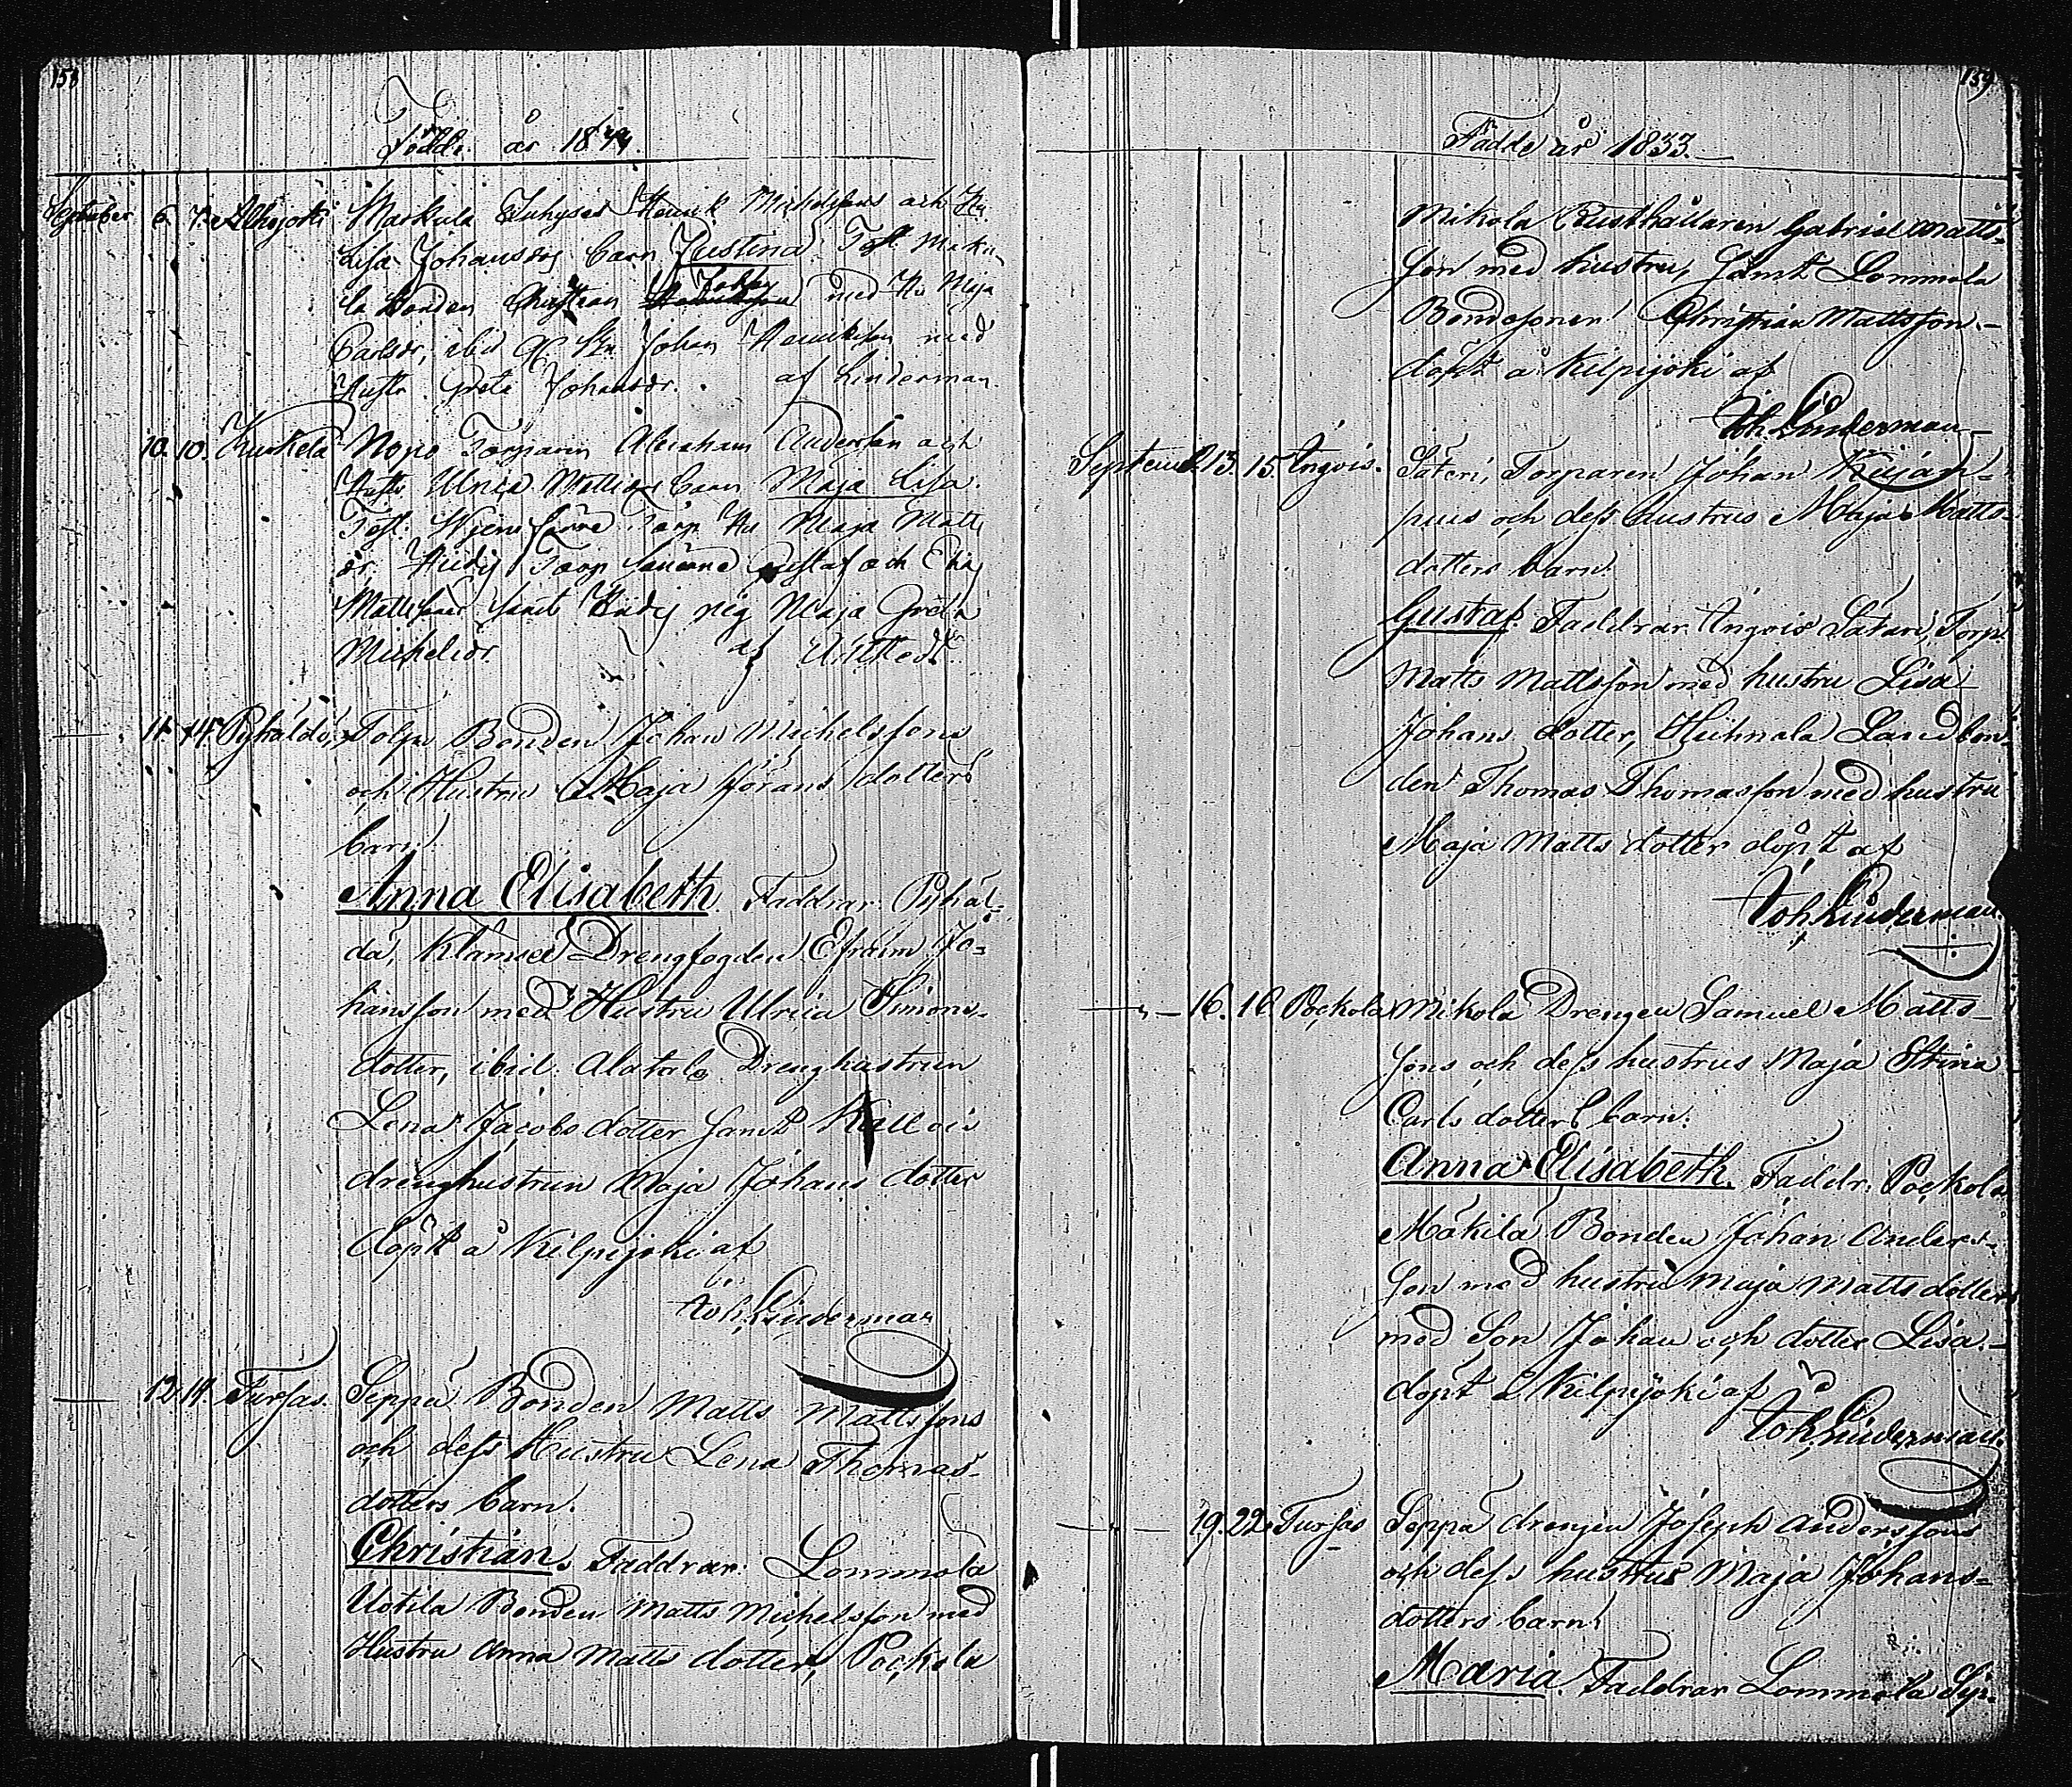 158
Födde år 1833.
September 6. 7. Alhojoki Markula Inhyses Henrik Michelsons och Hu
Lisa Johansdrs barn Justina. Test. Marku-
la Bonden Christian Johans med Hu Maja
Carlsdr, ibid Johan Henrikson med
Hustr. Greta Johansdr. af Linderman.
10. 10. Kuskela Nopo Torparen Abraham Anderson och
Hustr Ulrica Mattsdrs barn Maja Lisa.
Test. Torp. Hu Maja Matts
dr. Torp Sönerne Gustaf och
Mattssöner samt pig Maja Greta
Michelsdr. af
11. 14. Pyhäldö, Tolpo Bonden Johan Michelssons
och Hustru Maja Görans dotters
barn.
Anna Elisabeth. Faddrar. Pyhäl-
dö, Klämsei Drengfogden Efraim Jo-
hansson med Hustru Ulrica Simons-
dotter, ibid. Alatalo Drenghustrun
Lena Jacobs dotter samt Kallois
drenghustrun Maja Johans dotter
döpt å Kilpijoki af
Joh. Linderman
12. 14. Tursas. Seppä Bonden Matts Mattssons
och dess Hustru Lena Thomas-
dotters barn.
Christian. Faddrar. Lommola
Uotila Bonden Matts Michelsson med
Hustru Anna Matts dotter, Pockola
159
Födde år 1833.
Mikola Rusthållaren Gabriel Matts-
son med hustru, samt Lommola
Bondesonen Christian Mattsson.
döpt å Kilpijoki af
Joh. Linderman
Septemb. 13. 15. Ängvis. Säteri, Torparen Johan Kujan-
puus och dess hustrus Maja Matts-
dotters barn.
Gustaf. Faddrar. Ängvis Säteri, Torp.
Matts Mattsson med hustru Lisa
Johans dotter, Huhnala Landbon-
den Thomas Thomasson med hustru
Maja Matts dotter döpt af
Joh. Linderman.
16. 16. Pockola Mikola Drengen Samuel Matts-
sons och dess hustrus Maja Stina
Carls dotters barn.
Anna Elisabeth. Faddr. Pockola
Mäkilä Bonden Johan Anders-
son med hustru Maja Matts dotter
med Son Johan och dotter Lisa.
döpt å Kilpijoki af
Joh. Linderman.
19. 22. Tursas Seppä drengen Joseph Anderssons
och dess hustrus Maja Johans-
dotters barn.
Maria. Faddrar Lommola Sep-